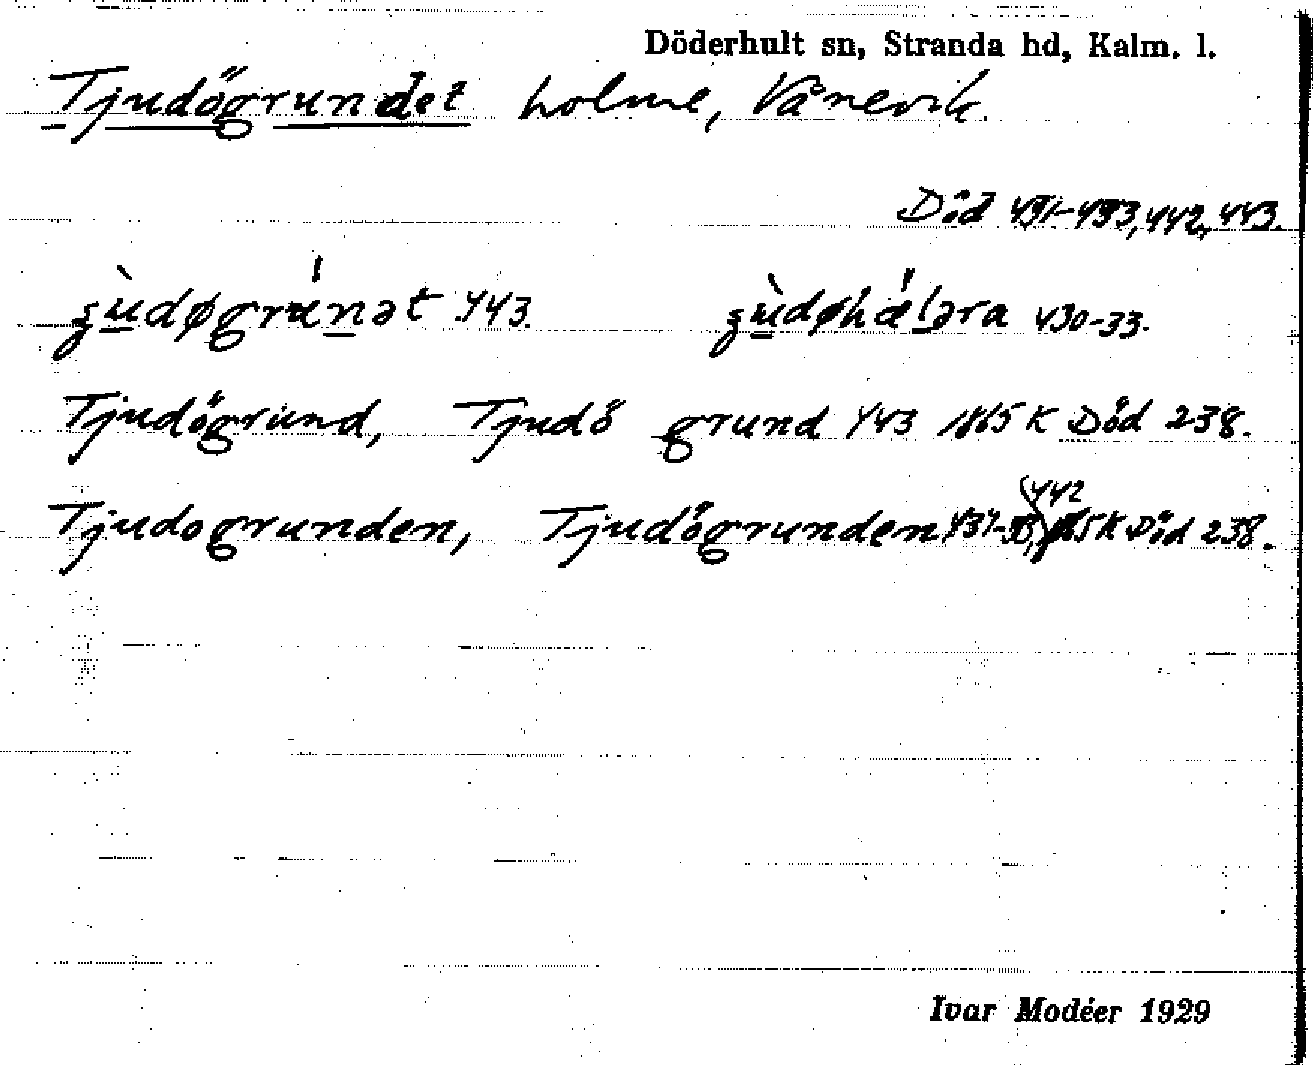 Döderhult sn, Stranda hd, Kalm. l.
Tjudögrundet holme, Vånevik.
Död 431-433, 442, 443.
443. 430-33.
Tjudögrund, Tjudö grund 443 1865 K Död 238.
442
Tjudogrunden, Tjudögrunden K Död 238.
Ivar Modéer 1929